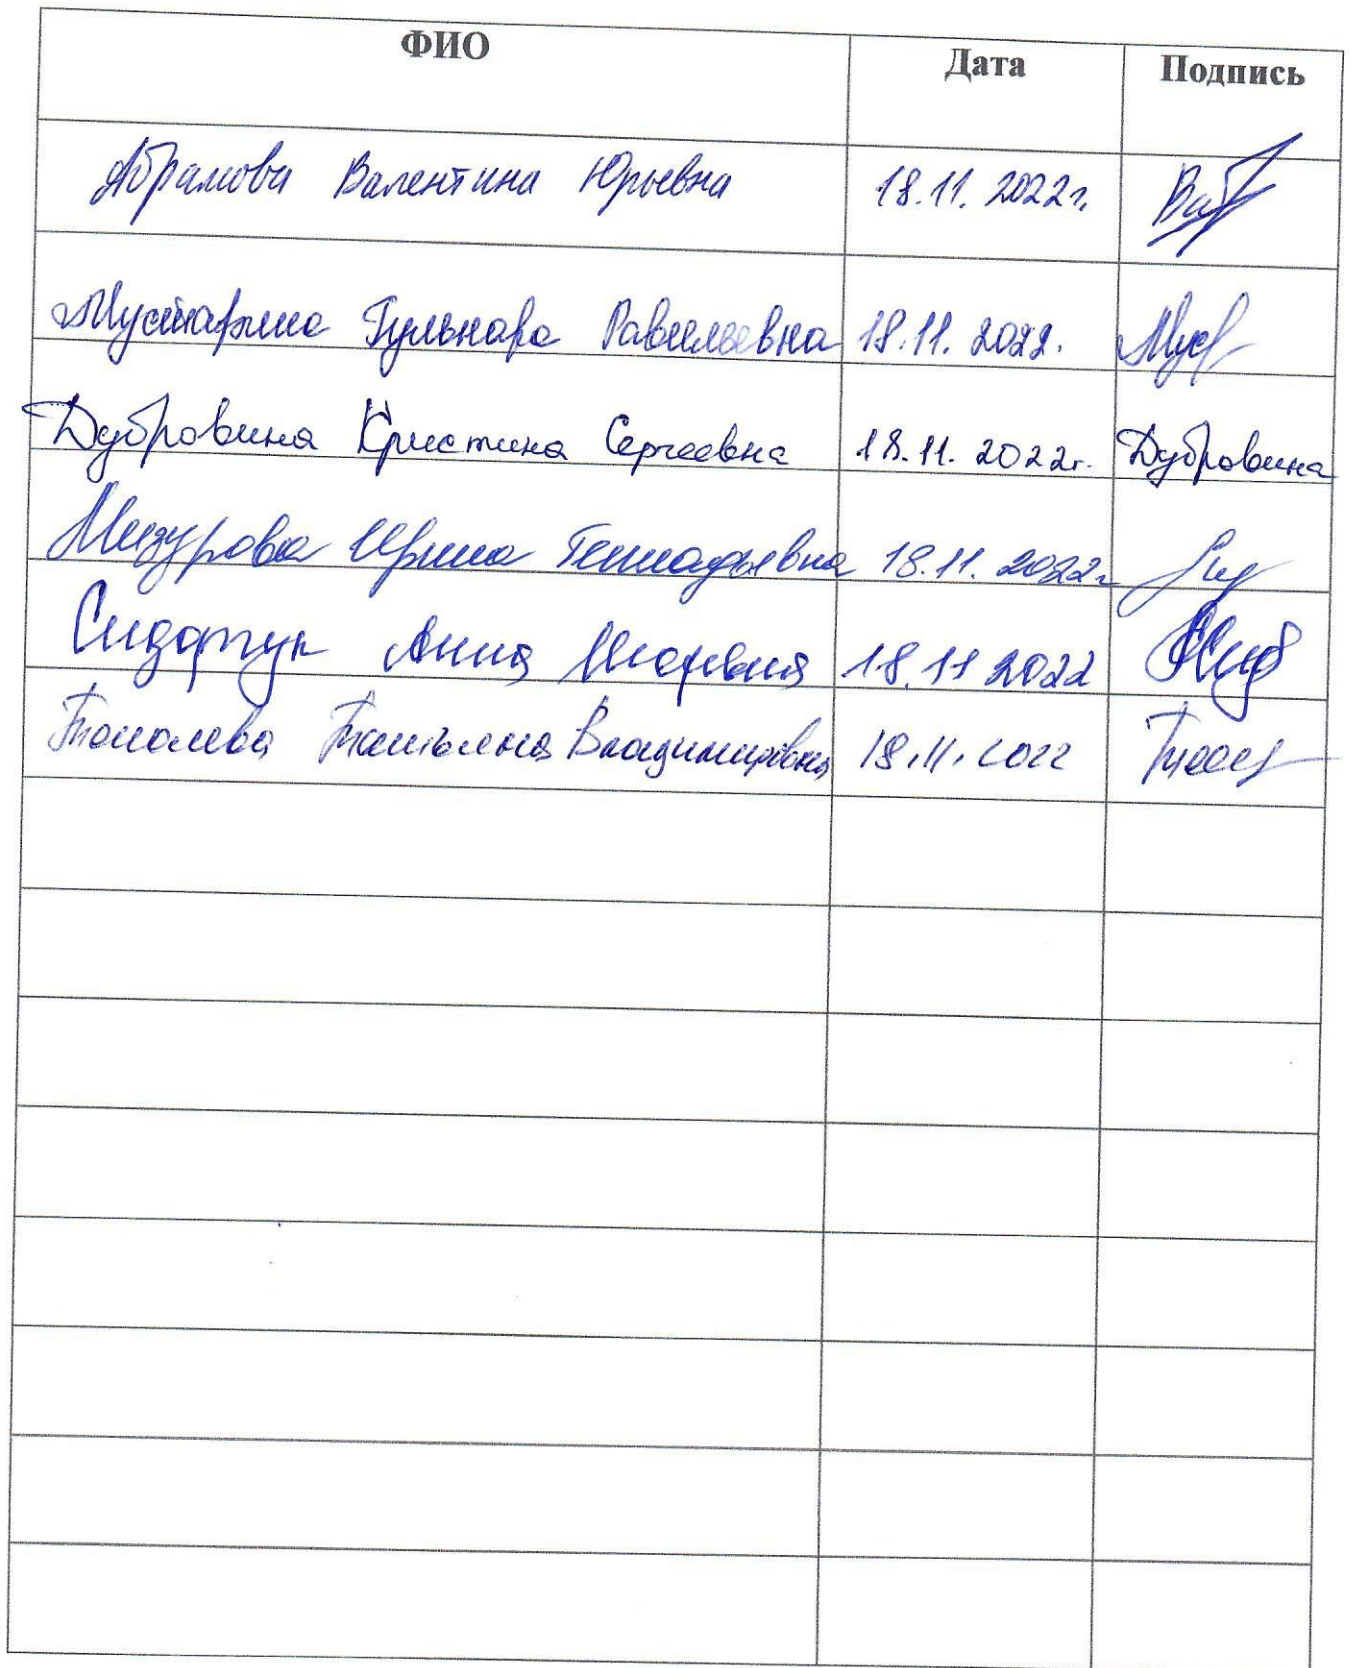 ФИО Дата Подпись
Абрамова Валентина Юрьевна 18.11.2022г.
Гульнара Равильевна 18.11.2022.
Дубровина Кристина Сергеевна 18.11.2022г. Дубровина
Мизурова Ирина Геннадьевна 18.11.2022г
Анна Игоревна 18.11 2022
Татьяна Владимировна 18.11.2022